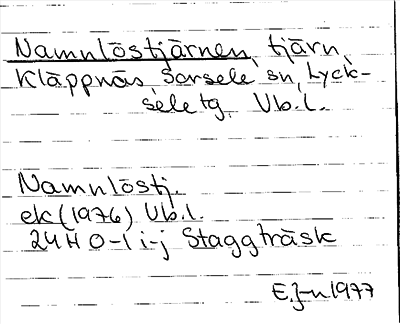 Namnlöstjärnen, tjärn,
Kläppnäs, Sorsele sn, Lyck-
sele tg, Vb.l.
Namnlöstj.
ek (1976) Vb.l.
24H 0-1 i-j Staggträsk
E.J-n 1977